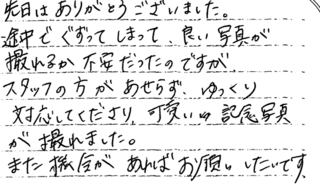 先日はありがとうございました。
途中でぐずってしまって、良い写真が
撮れるか不安だったのですが、
スタッフの方があせらず、ゆっくり
対応してくださり、可愛い記念写真
が撮れました。
また機会があればお願いしたいです